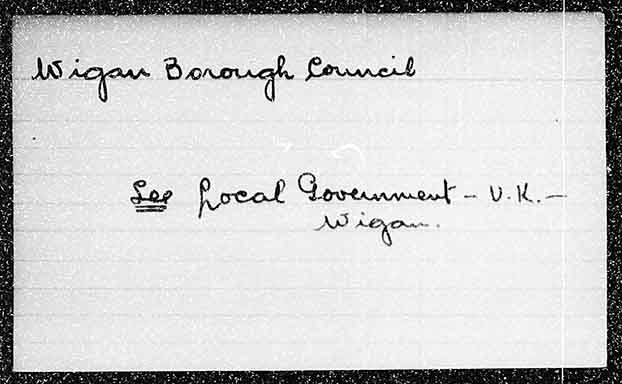 Wigan Borough Council
See Local Government - U.K. -
Wigan.